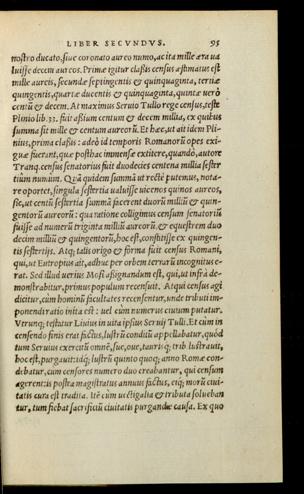 LIBER SECVNDVS. 95
nostro ducato, siue coronato aureo numo, ac ita mille æra ua
luisse decem aureos. Primæ igitur classis census æstimatus est
mille aureis, secundæ septingentis & quinquaginta, tertiæ
quingentis, quartæ ducentis & quinquaginta, quintæ uerò
centũ & decem. At maximus Seruio Tullo rege census, teste
Plinio lib. 33. fuit aßium centum & decem millia, ex quibus
summa fit mille & centum aureorũ. Et hæc, ut ait idem Pli-
nius, prima classis: adeò id temporis Romanorũ opes exi-
guæ fuerant, quæ posthac immensæ extitere, quando, autore
Tranq. census senatorius fuit duodecies centena millia sester
tium nummũ. Quâ quidem summâ ut rectè putemus, nota-
re oportet, singula sestertia ualuisse uicenos quinos aureos,
sic, ut centũ sestertia summã facerent duorũ milliũ & quin-
gentorũ aureorũ: qua ratione colligimus censum senatoriũ
fuisse ad numerũ triginta milliũ aureorũ, & equestrem duo
decim milliũ & quingentorũ, hoc est, constitisse ex quingen-
tis sestertijs. Atq; talis origo & forma fuit census Romani,
qui, ut Eutropius ait, adhuc per orbem terrarũ incognitus e-
rat. Sed illud uerius Mosi aßignandum est, qui, ut infrà de-
monstrabitur, primus populum recensuit. Atqui census agi
dicitur, cùm hominũ facultates recensentur, unde tributi im-
ponendi ratio inita est: uel cùm numerus ciuium putatur.
Vtrunq; testatur Liuius in uita ipsius Seruij Tulli. Et cùm in
censendo finis erat factus, lustrũ conditũ appellabatur, quòd
tum Seruius exercitũ omnẽ, sue, oue, taurisq; trib lustrauit,
hoc est, purgauit: idq; lustrũ quinto quoq; anno Romæ con-
debatur, cum censores numero duo creabantur, qui censum
agerent: is postra magistratus annuus factus, eiq; morũ ciui-
tatis cura est tradita. Itẽ cùm uectigalia & tributa solueban
tur, tum fiebat sacrificiũ ciuitatis purgandæ causa. Ex quo